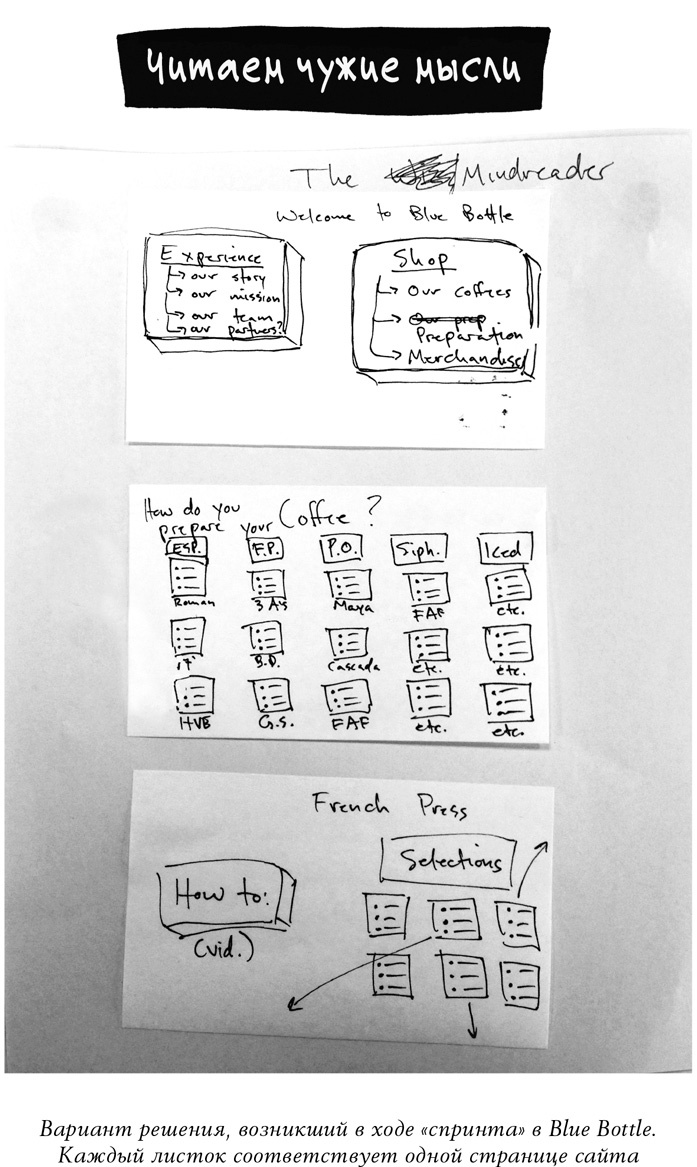 Читаем чужие мысли
The Mindreader
Welcome to Blue Bottle
Experience
our story
our mission
our team
our partners?
Shop
Our coffees
Our prep
Preparation
Merchandise
How do you
prepare your Coffee?
ESP. F.P. P.O. Siph. Iced
Roman 3 A's Maya FAF etc.
17' B.D. Cascada etc. etc.
HVB G.S. FAF etc. etc.
French Press
Selections
How to:
(vid.)
Вариант решения, возникший в ходе «спринта» в Blue Bottle.
Каждый листок соответствует одной странице сайта